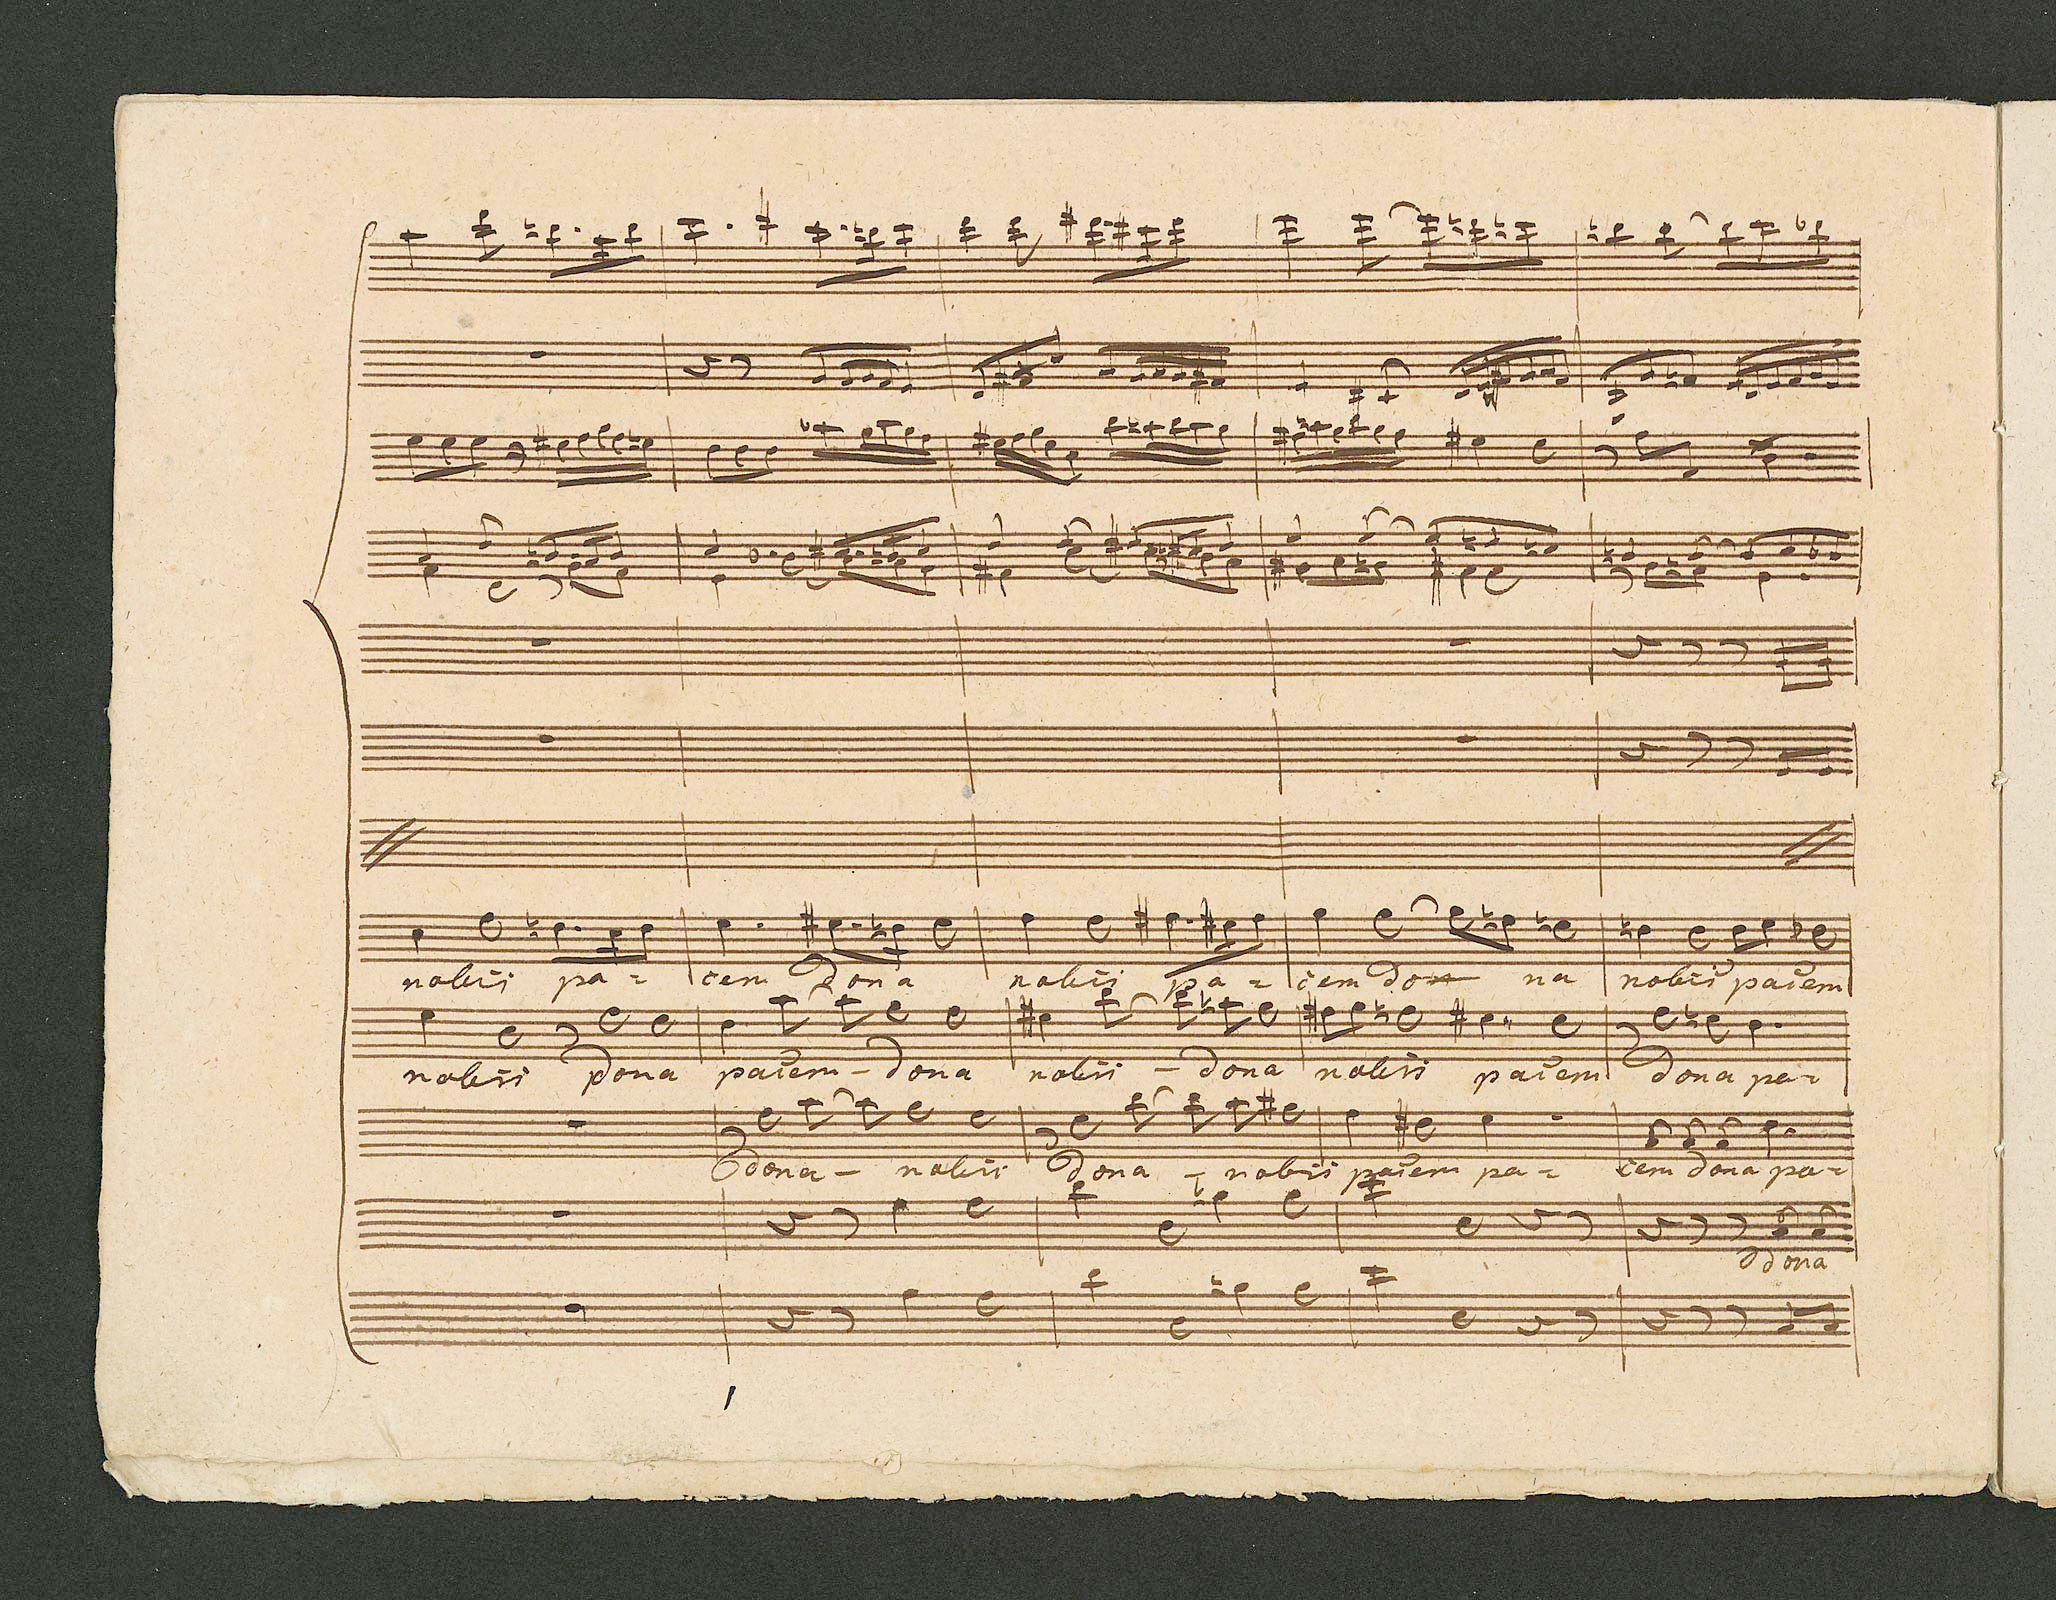 nobis pa- cem Dona nobis pa- cem dona nobis pacem
nobis Dona pacem - Dona nobis - dona nobis pacem Dona pa-
Dona - nobis Dona - nobis pacem pa- cem dona pa-
Dona